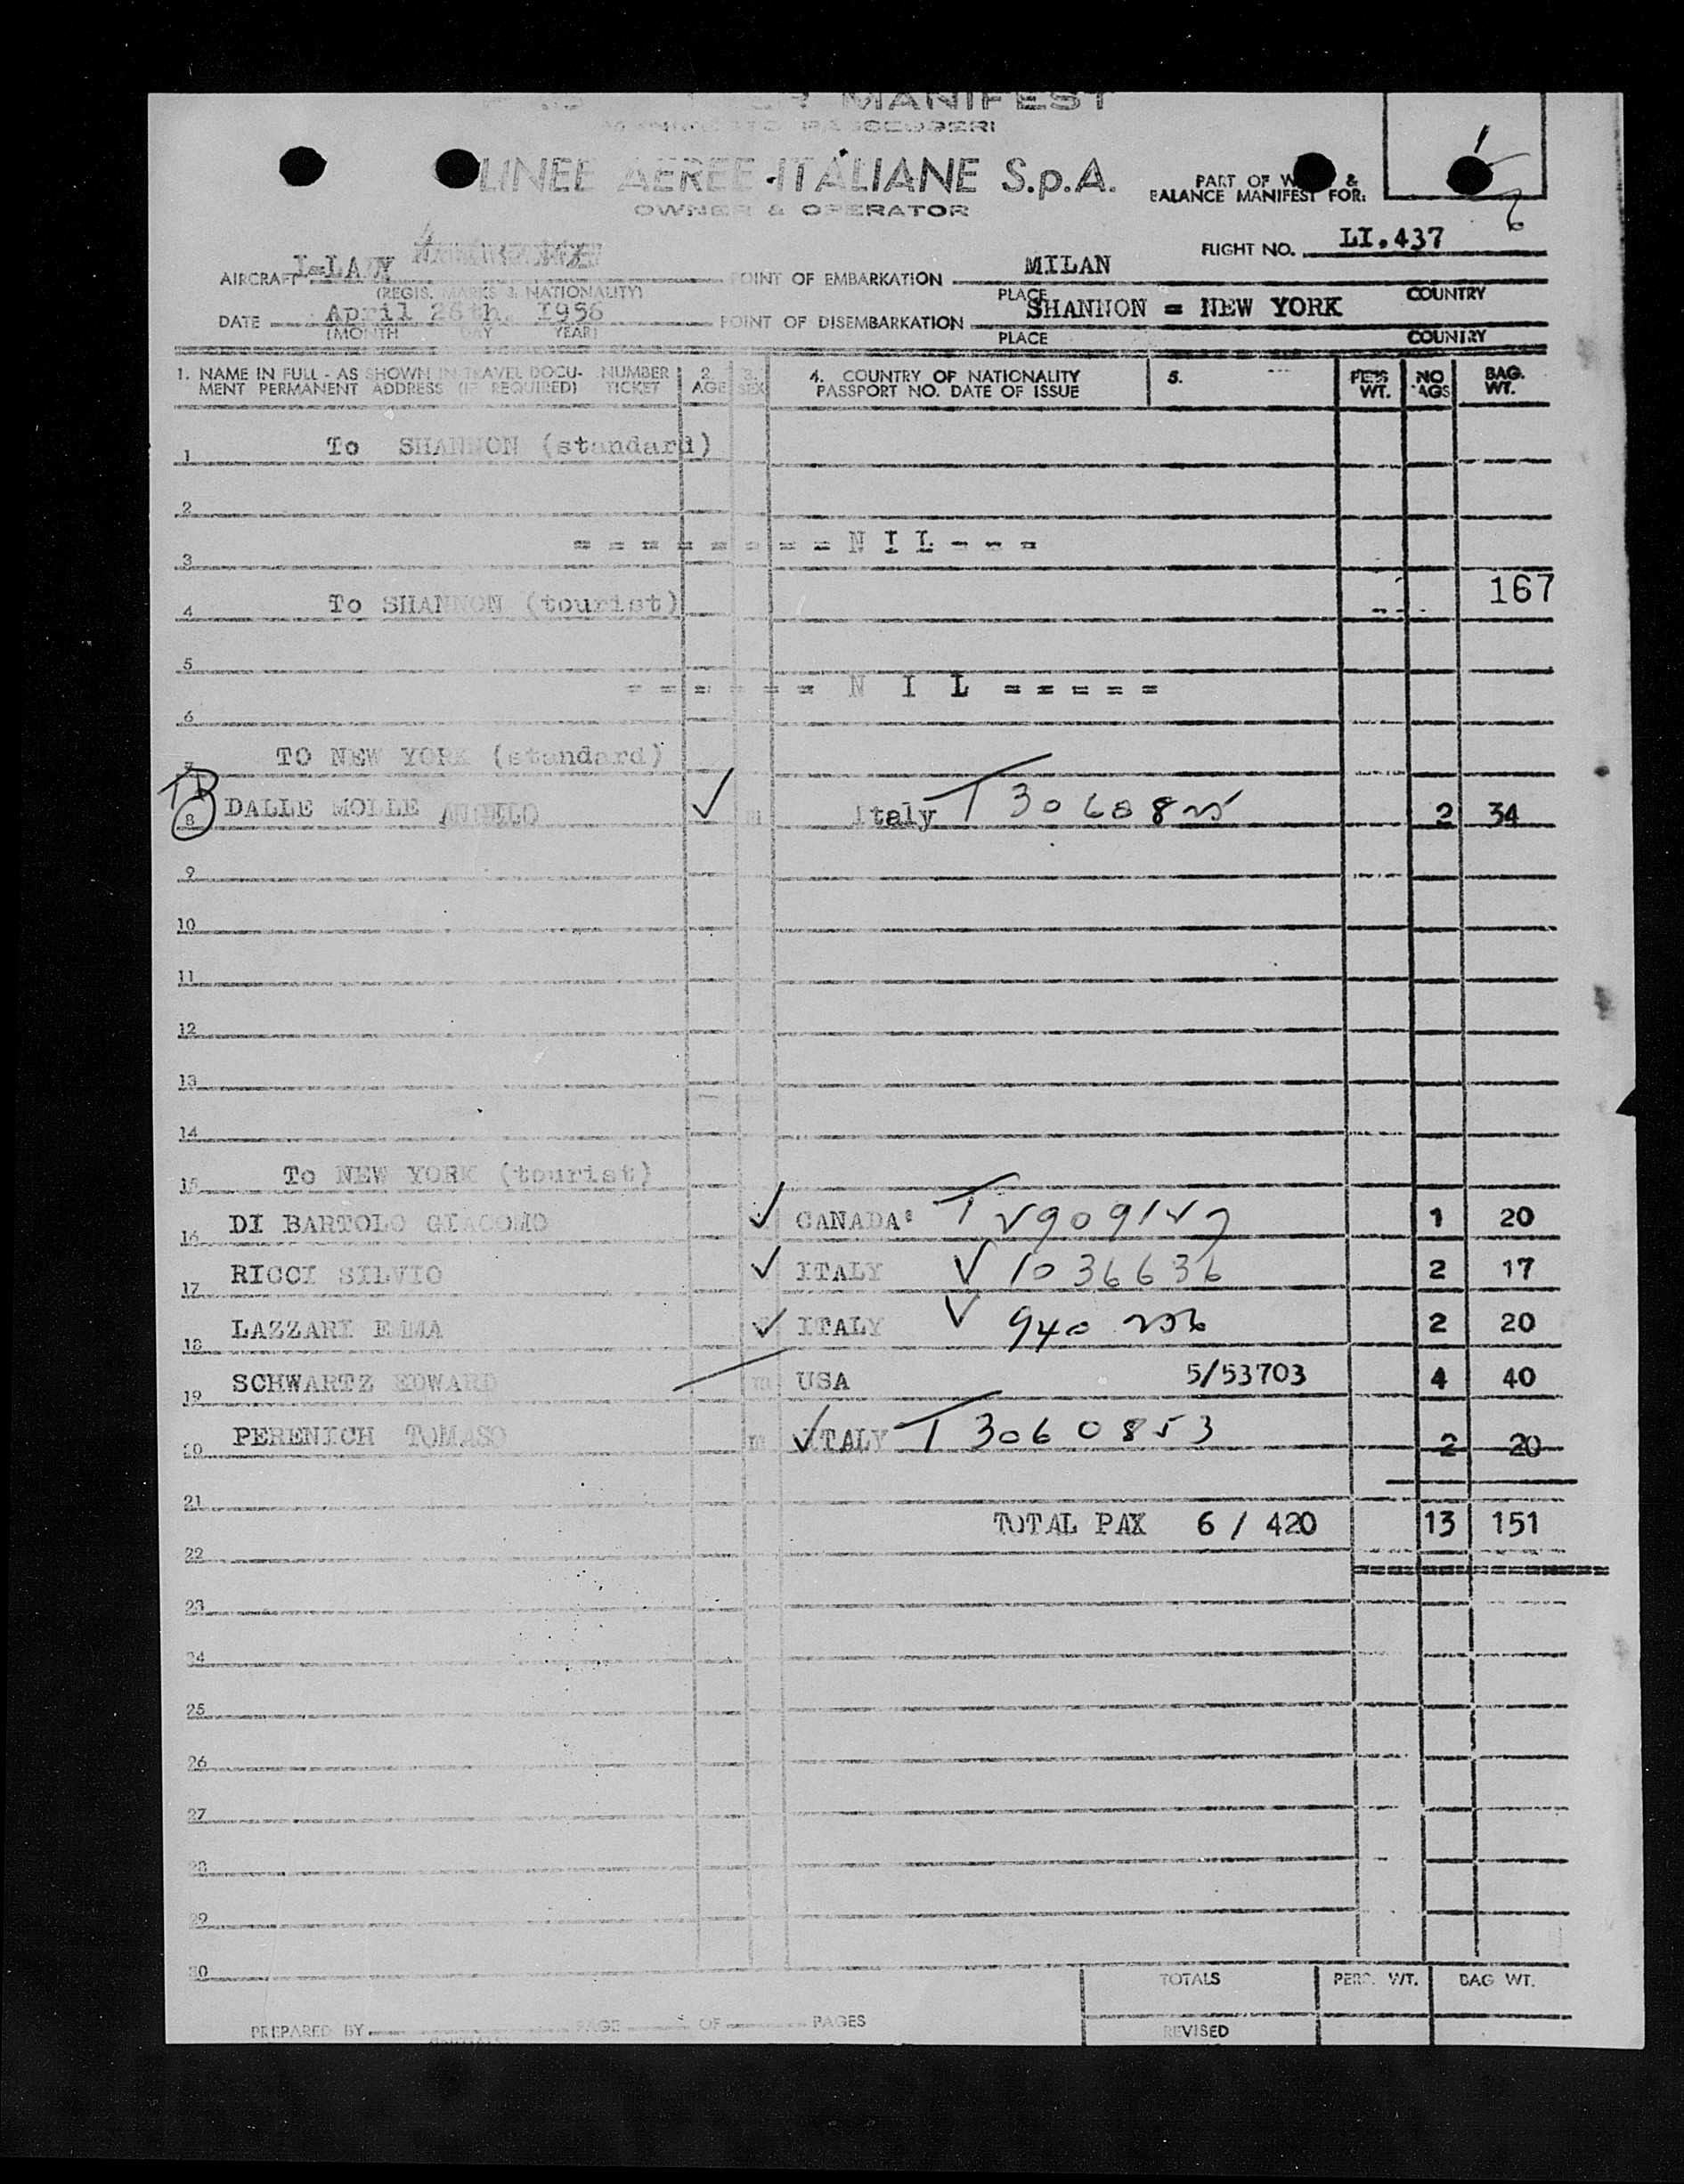 MANIFEST
MANIFESTO PASSEGGERI
LINEE AEREE ITALIANE S.p.A.
OWNER & OPERATOR
PART OF W & BALANCE MANIFEST FOR:
FLIGHT NO. LI.437
AIRCRAFT I-LADY POINT OF EMBARKATION MILAN
(REGIS. MARKS & NATIONALITY) PLACE COUNTRY
DATE April 26th, 1956 POINT OF DISEMBARKATION SHANNON = NEW YORK
(MONTH DAY YEAR) PLACE COUNTRY
1. NAME IN FULL - AS SHOWN IN TRAVEL DOCU- NUMBER 2. 3. 4. COUNTRY OF NATIONALITY 5. PERS NO BAG.
MENT PERMANENT ADDRESS (IF REQUIRED) TICKET AGE SEX PASSPORT NO. DATE OF ISSUE WT. AGS WT.
1 To SHANNON (standard)
2
3 = = = = = = = = N I L - - =
4 To SHANNON (tourist) 167
5
= = = = = = N I L = = = = =
6
7 TO NEW YORK (standard)
8 DALLE MOLLE ANGELO ✓ m Italy T 3060825 2 34
9
10
11
12
13
14
15 To NEW YORK (tourist)
16 DI BARTOLO GIACOMO ✓ CANADA: T 1 20
17 RICCI SILVIO ✓ ITALY V 1036636 2 17
18 LAZZARI EMMA ✓ ITALY V 940 256 2 20
19 SCHWARTZ EDWARD m USA 5/53703 4 40
20 PERENICH TOMASO m ✓ITALY T 3060853 2 20
21
TOTAL PAX 6 / 420 13 151
22
23
24
25
26
27
28
29
30
TOTALS PERS. WT. BAG WT.
PREPARED BY PAGE OF PAGES REVISED